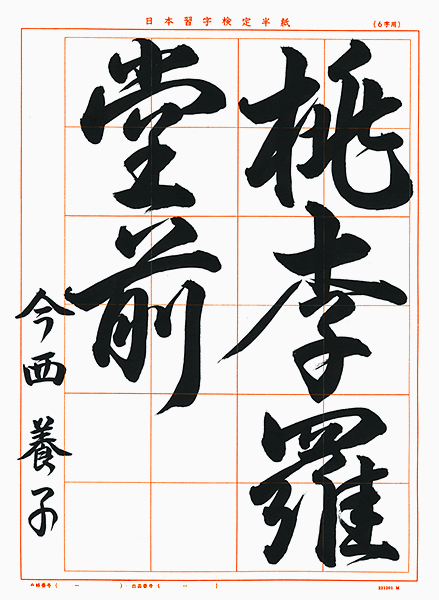 日本習字検定半紙
(6字用)
桃李羅
堂前
今西養子